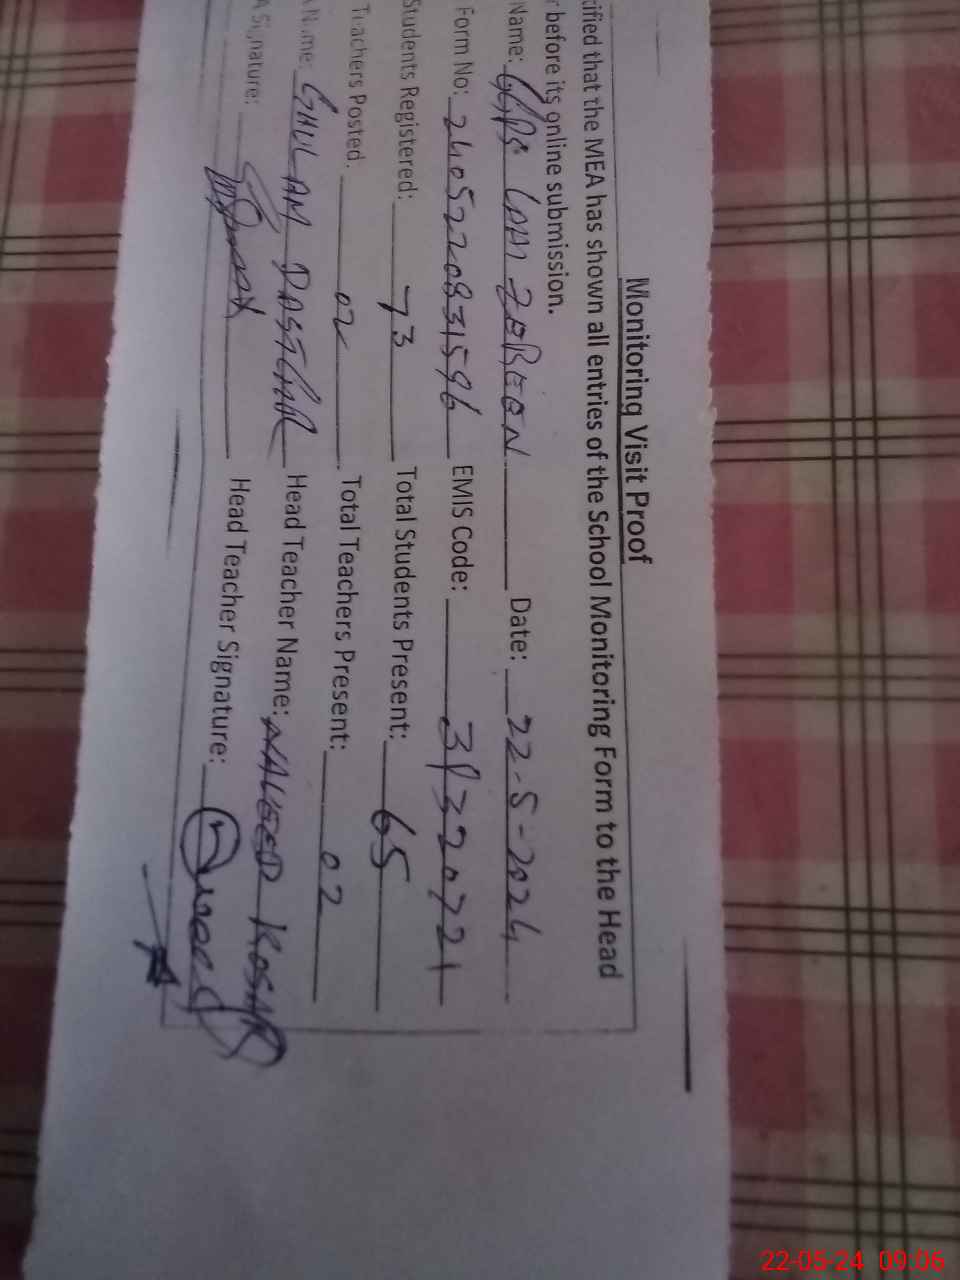 Monitoring Visit Proof
tified that the MEA has shown all entries of the School Monitoring Form to the Head
r before its online submission.
Name: G/PS LAM ZEREEN Date: 22-5-2024
Form No: 2405220831596 EMIS Code: 38320721
Students Registered: 73 Total Students Present: 65
Teachers Posted. 02 Total Teachers Present: 02
A Name: GHULAM DASTGIR Head Teacher Name: NAVEED KOSAR
A Signature: Head Teacher Signature:
22-05-24 09:06